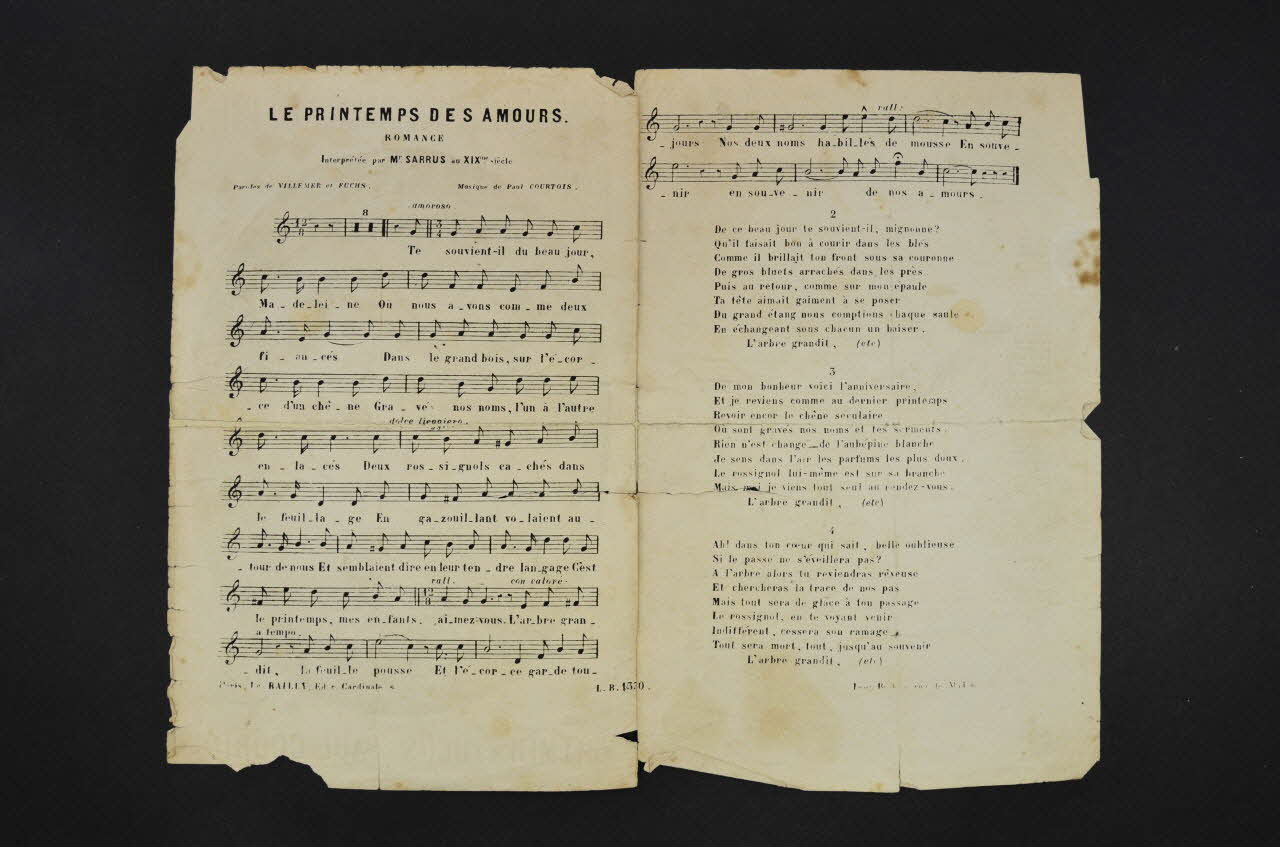 LE PRINTEMPS DES AMOURS.
ROMANCE
Interprétée par Mr. SARRUS au XIXme siècle
Paroles de VILLEMER et FUCHS.
Musique de Paul COURTOIS.
8
amoroso
Te souvient-il du beau jour,
Ma_de_lei_ne Où nous a_vons com_me deux
fi_an_cés Dans le grand bois, sur l'é_cor_
_ce d'un chê_ne Gra_vé nos noms, l'un à l'autre
dolce
en_la_cés Deux ros_si_gnols ca_chés dans
le feuil_la_ge En ga_zouil_lant vo_laient au_
_tour de nous Et semblaient dire en leur ten_dre lan_gage C'est
rall. con calore.
le printemps, mes en_fants, ai_mez-vous. L'ar_bre gran_
a tempo.
_dit, la feuil_le pousse Et l'é_cor_ce gar_de tou_
Paris, Le BAILLY, Edr. Cardinale
L. B. 1530.
rall:
_jours Nos deux noms ha_bil_lés de mousse En souve_
_nir en sou_ve_nir de nos a_mours.
2
De ce beau jour te souvient-il, mignonne?
Qu'il faisait bon à courir dans les blés
Comme il brillait ton front sous sa couronne
De gros bluets arrachés dans les prés
Puis au retour, comme sur mon épaule
Ta tête aimait gaiment à se poser
Du grand étang nous comptions chaque saule
En échangeant sous chacun un baiser.
L'arbre grandit, (etc)
3
De mon bonheur voici l'anniversaire,
Et je reviens comme au dernier printemps
Revoir encor le chêne séculaire
Où sont gravés nos noms et tes serments.
Rien n'est changé_ de l'aubépine blanche
Je sens dans l'air les parfums les plus doux.
Le rossignol lui-même est sur sa branche
Mais moi je viens tout seul au rendez-vous.
L'arbre grandit, (etc)
4
Ah! dans ton cœur qui sait, belle oublieuse
Si le passé ne s'éveillera pas?
A l'arbre alors tu reviendras rêveuse
Et chercheras la trace de nos pas
Mais tout sera de glace à ton passage
Le rossignol, en te voyant venir
Indifférent, cessera son ramage
Tout sera mort, tout, jusqu'au souvenir
L'arbre grandit, (etc)